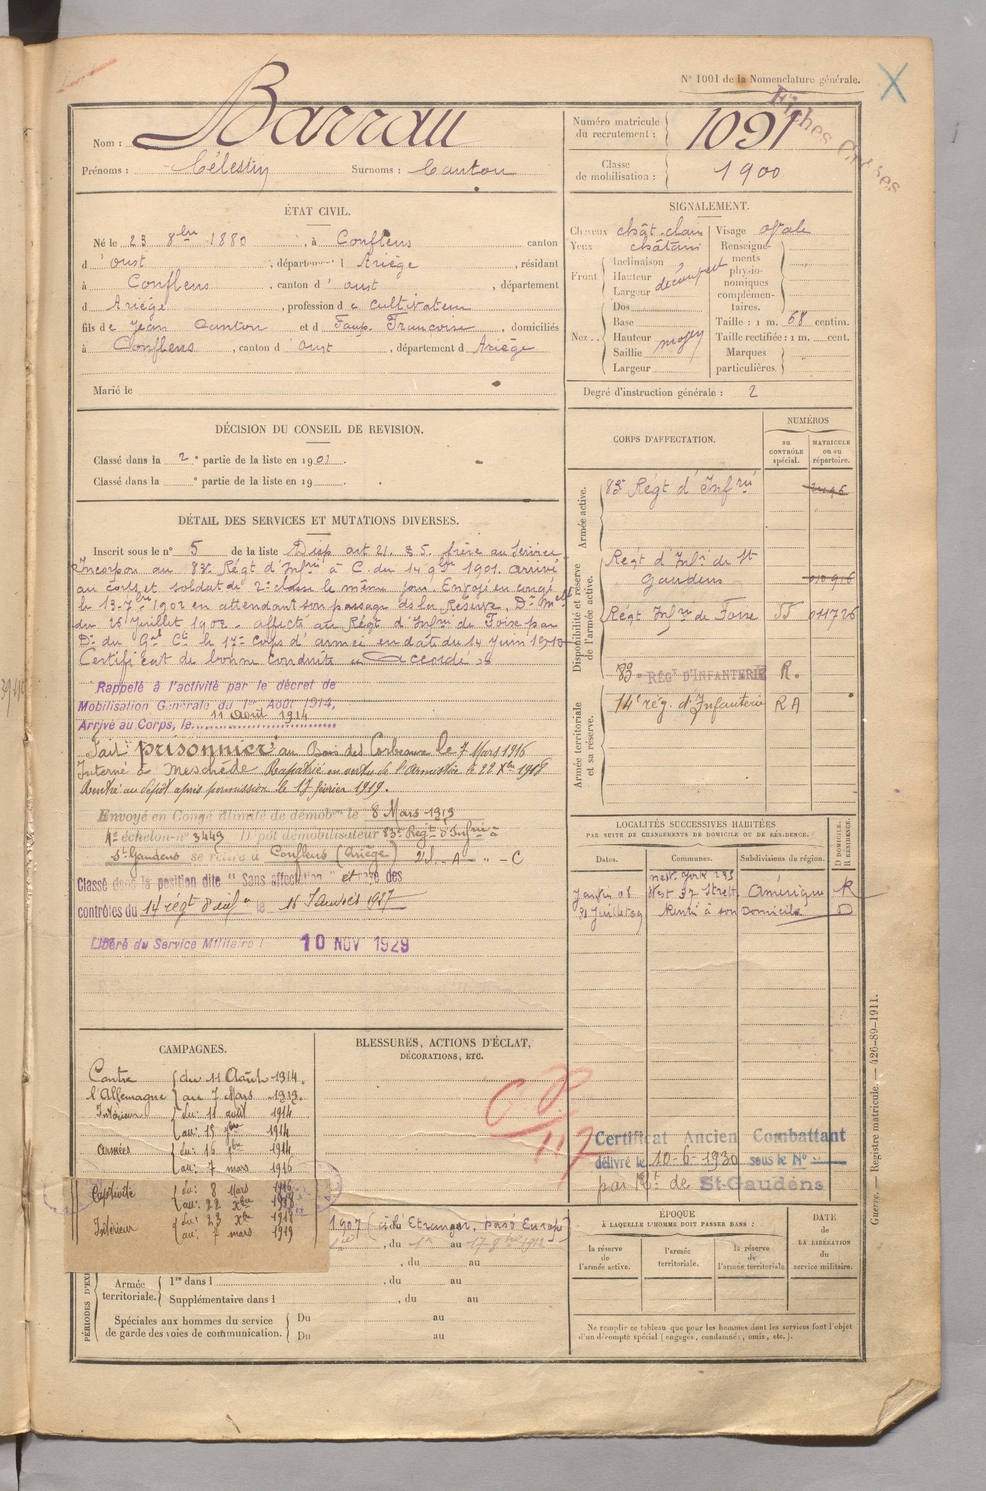 N° 1001 de la Nomenclature générale.
Nom : Barrau
Prénoms : Célestin Surnoms : Canton
Numéro matricule du recrutement : 1091
Classe de mobilisation : 1900
Fiches
ÉTAT CIVIL.
Né le 23 8bre 1880, à Conflens canton
d'oust, département d Ariège, résidant
à Conflens, canton d'oust, département
d Ariège, profession de cultivateur
fils de Jean Canton et d Faup. Françoise, domiciliés
à Conflens, canton d'oust, département d Ariège
Marié le
SIGNALEMENT.
Cheveux chât. clair
Yeux châtain
Front
Inclinaison
Hauteur
Largeur
découvert
Nez
Dos
Base
Hauteur
Saillie
Largeur
moyen
Visage ovale
Renseignements physionomiques complémentaires.
Taille : 1 m. 68 centim.
Taille rectifiée : 1 m. cent.
Marques particulières.
Degré d'instruction générale : 2
DÉCISION DU CONSEIL DE REVISION.
Classé dans la 2e partie de la liste en 1901.
Classé dans la e partie de la liste en 19
DÉTAIL DES SERVICES ET MUTATIONS DIVERSES.
Inscrit sous le n° 5 de la liste Disp. art 21. § 5. frère au Service
Incorporé au 83e Régt d'Infrie à C. du 14 9bre 1901. arrivé
au corps et soldat de 2e classe le même jour. Envoyé en congé
le 13-7bre 1902 en attendant son passage ds la Réserve. Don Melle
du 26 Juillet 1902. affecté au Régt d'Infrie de Foix par
Don du Gal Ct le 17e corps d'armée en date du 14 Juin 1910
Certificat de bonne conduite "Accordé"
Rappelé à l'activité par le décret de
Mobilisation Générale du 1er Août 1914,
Arrivé au Corps, le 11 Août 1914
Fait prisonnier au Bois des Corbeaux le 7 Mars 1916
Interné à Meschède Rapatrié en vertu de l'armistice le 22 Xbre 1918
Rentré au dépôt après permission le 17 février 1919.
Envoyé en Congé illimité de démobon le 8 Mars 1919
4e échelon n° 3449 Dépôt démobilisateur 83e Régt d'Infrie à
St Gaudens se retire à Conflens (Ariège)
Classé dans la position dite "Sans affectation" et rayé des
contrôles du 14 régt d'infie le 15 Janvier 1927
Libéré du Service Militaire 10 NOV 1929
CORPS D'AFFECTATION.
NUMÉROS
au CONTRÔLE spécial.
MATRICULE ou au répertoire.
Armée active.
83e Régt d'Infrie
Disponibilité et réserve de l'armée active.
Régt d'Infie de St Gaudens
Régt Infie de Foix 011726
Armée territoriale et sa réserve.
83e RÉGt D'INFANTERIE R.
14e rég. d'Infanterie RA
LOCALITÉS SUCCESSIVES HABITÉES
PAR SUITE DE CHANGEMENTS DE DOMICILE OU DE RÉSIDENCE.
Dates. Communes. Subdivisions de région. D DOMICILE. R RÉSIDENCE.
Janvier 08 New. York 233 West 37 Street. Amérique R
31 Juillet 09 Rentré à son Domicile. D
CAMPAGNES.
Contre l'Allemagne
du 11 Août 1914.
au 7 Mars 1919.
Intérieur
du: 11 août 1914
au: 15 7bre 1914
Armées
du: 16 7bre 1914
au: 7 mars 1916
Captivité
du: 8 Mars 1916
au: 22 Xbre 1918
Intérieur
du: 23 Xbre 1918
au: 7 mars 1919
BLESSURES, ACTIONS D'ÉCLAT,
DÉCORATIONS, ETC.
C P
117
Certificat Ancien Combattant
délivré le 10-6-1930 sous le N°
par Rt de St-Gaudens
1907 (à l'Etranger, hors Europe)
, du 1er au 17 1912
, du au
Armée territoriale.
1re dans l , du au
Supplémentaire dans l , du au
Spéciales aux hommes du service de garde des voies de communication.
Du au
Du au
ÉPOQUE
À LAQUELLE L'HOMME DOIT PASSER DANS :
la réserve de l'armée active.
l'armée territoriale.
la réserve de l'armée territoriale
DATE de LA LIBÉRATION du service militaire.
Ne remplir ce tableau que pour les hommes dont les services font l'objet
d'un décompte spécial (engagés, condamnés, omis, etc.).
Guerre. — Registre matricule. — 426-89-1911.